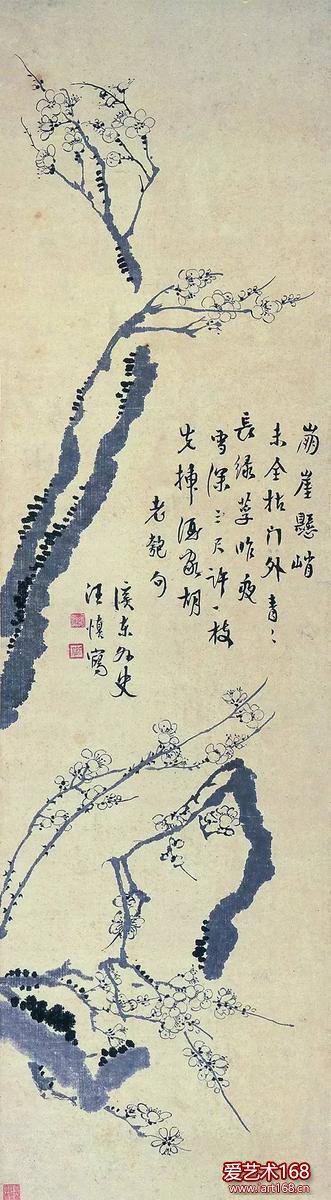 崩崖懸峭
未全枯門外青〻
長綠草昨夜
雪深三尺許一枝
先插酒家胡
老匏句
溪東外史
汪慎寫
爱艺术168
www.art168.cn